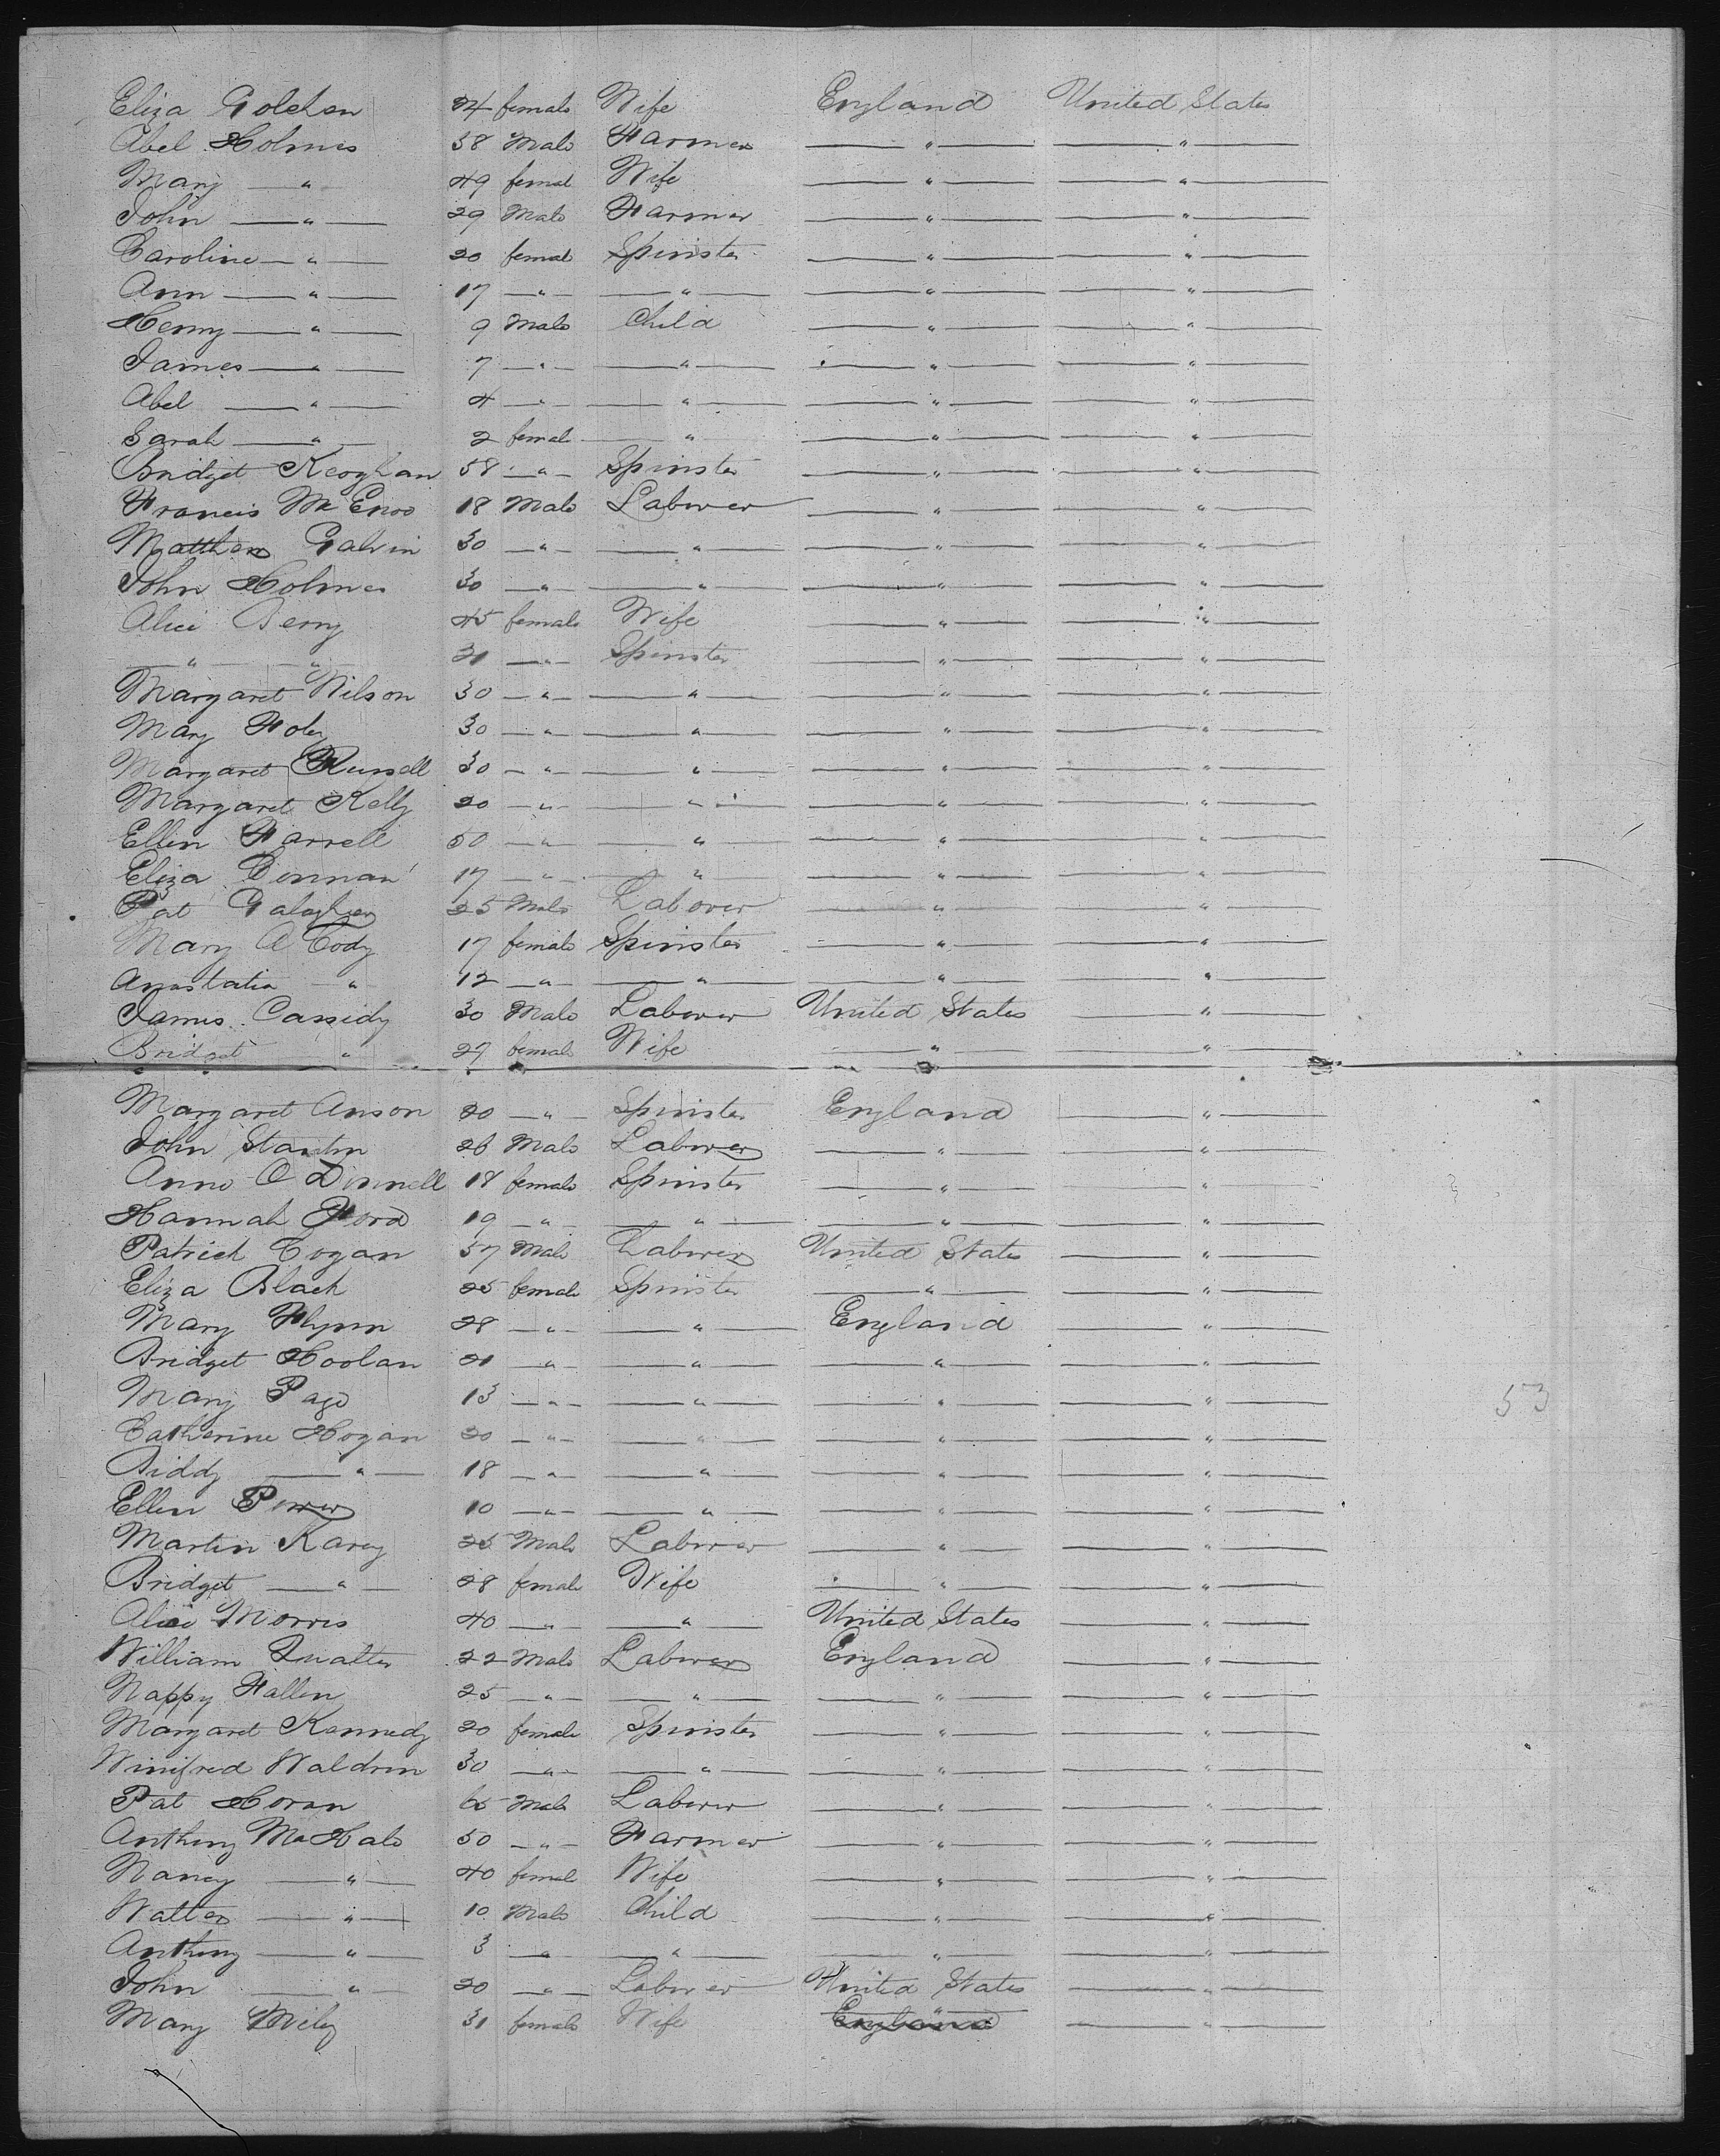 Eliza Golchen 24 female Wife England United States
Abel Holmes 38 Male Farmer " "
Mary " 49 femal Wife " "
John " 29 Male Farmer " "
Caroline " 20 femal Spinster " "
Ann " 17 " " " "
Henry " 9 Male Child " "
James " 7 " " " "
Abel " 4 " " " "
Sarah " 2 female " " "
Bridget Keoghan 58 " Spinster " "
Francis McEnro 18 Male Laborer " "
Matthew Galvin 30 " " " "
John Holmes 30 " " " "
Alice Berry 45 female Wife " "
" " 21 " Spinster " "
Margaret Wilson 30 " " " "
Mary Foley 30 " " " "
Margaret Russell 30 " " " "
Margaret Kelly 20 " " " "
Ellen Farrell 50 " " " "
Eliza Connan 17 " " " "
Pat Galagher 25 Male Laborer " "
Mary A Cody 17 female Spinster " "
Anastatia " 12 " " " "
James Cassidy 30 Male Laborer United States "
Bridget " 27 female Wife " "
Margaret Anson 20 " Spinster England "
John Stanton 26 Male Laborer " "
Anne O Donnell 18 female Spinster " "
Hannah Ford 19 " " " "
Patrick Cogan 37 Male Laborer United States "
Eliza Black 25 female Spinster " "
Mary Flynn 28 " " England "
Bridget Hoolan 21 " " " "
Mary Page 13 " " " "
53
Catherine Hogan 20 " " " "
Biddy " 18 " " " "
Ellen Power 10 " " " "
Martin Karey 25 Male Laborer " "
Bridget " 28 female Wife " "
Alice Morris 40 " " United States "
William Qualter 22 Male Laborer England "
Nappy Fallen 25 " " " "
Margaret Kennedy 20 female Spinster " "
Winifred Waldron 30 " " " "
Pat Horan 65 Male Laborer " "
Anthony McHale 50 " Farmer " "
Nancy " 40 femal Wife " "
Walter " 10 Male Child " "
Anthony " 3 " " " "
John " 20 " Laborer United States "
Mary Miley 31 female Wife " England "